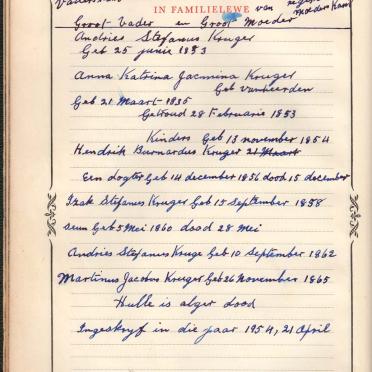 IN FAMILIELEWE van
Groot Vader en Groot Moeder Moeders Kant
Andries Stefanus Kruger
Geb 25 junie 1853
Anna Katrina Jacmina Kruger
Geb vanheerden
Geb 21 Maart 1835
Getroud 28 Februarie 1853
Kinders Geb 13 november 1854
Hendrik Burnardus Kruger 21 Maart
Een dogter Geb 14 december 1856 dood 15 december
Izak Stefanus Kruger Geb 15 September 1858
seun Geb 5 Mei 1860 doad 28 Mei
Andries Stefanus Kruge Geb 10 September 1862
Martinus Jacobus Kruger Geb 26 November 1865
Hulle is alger dood
Ingeskryf in die jaar 1954, 21 April